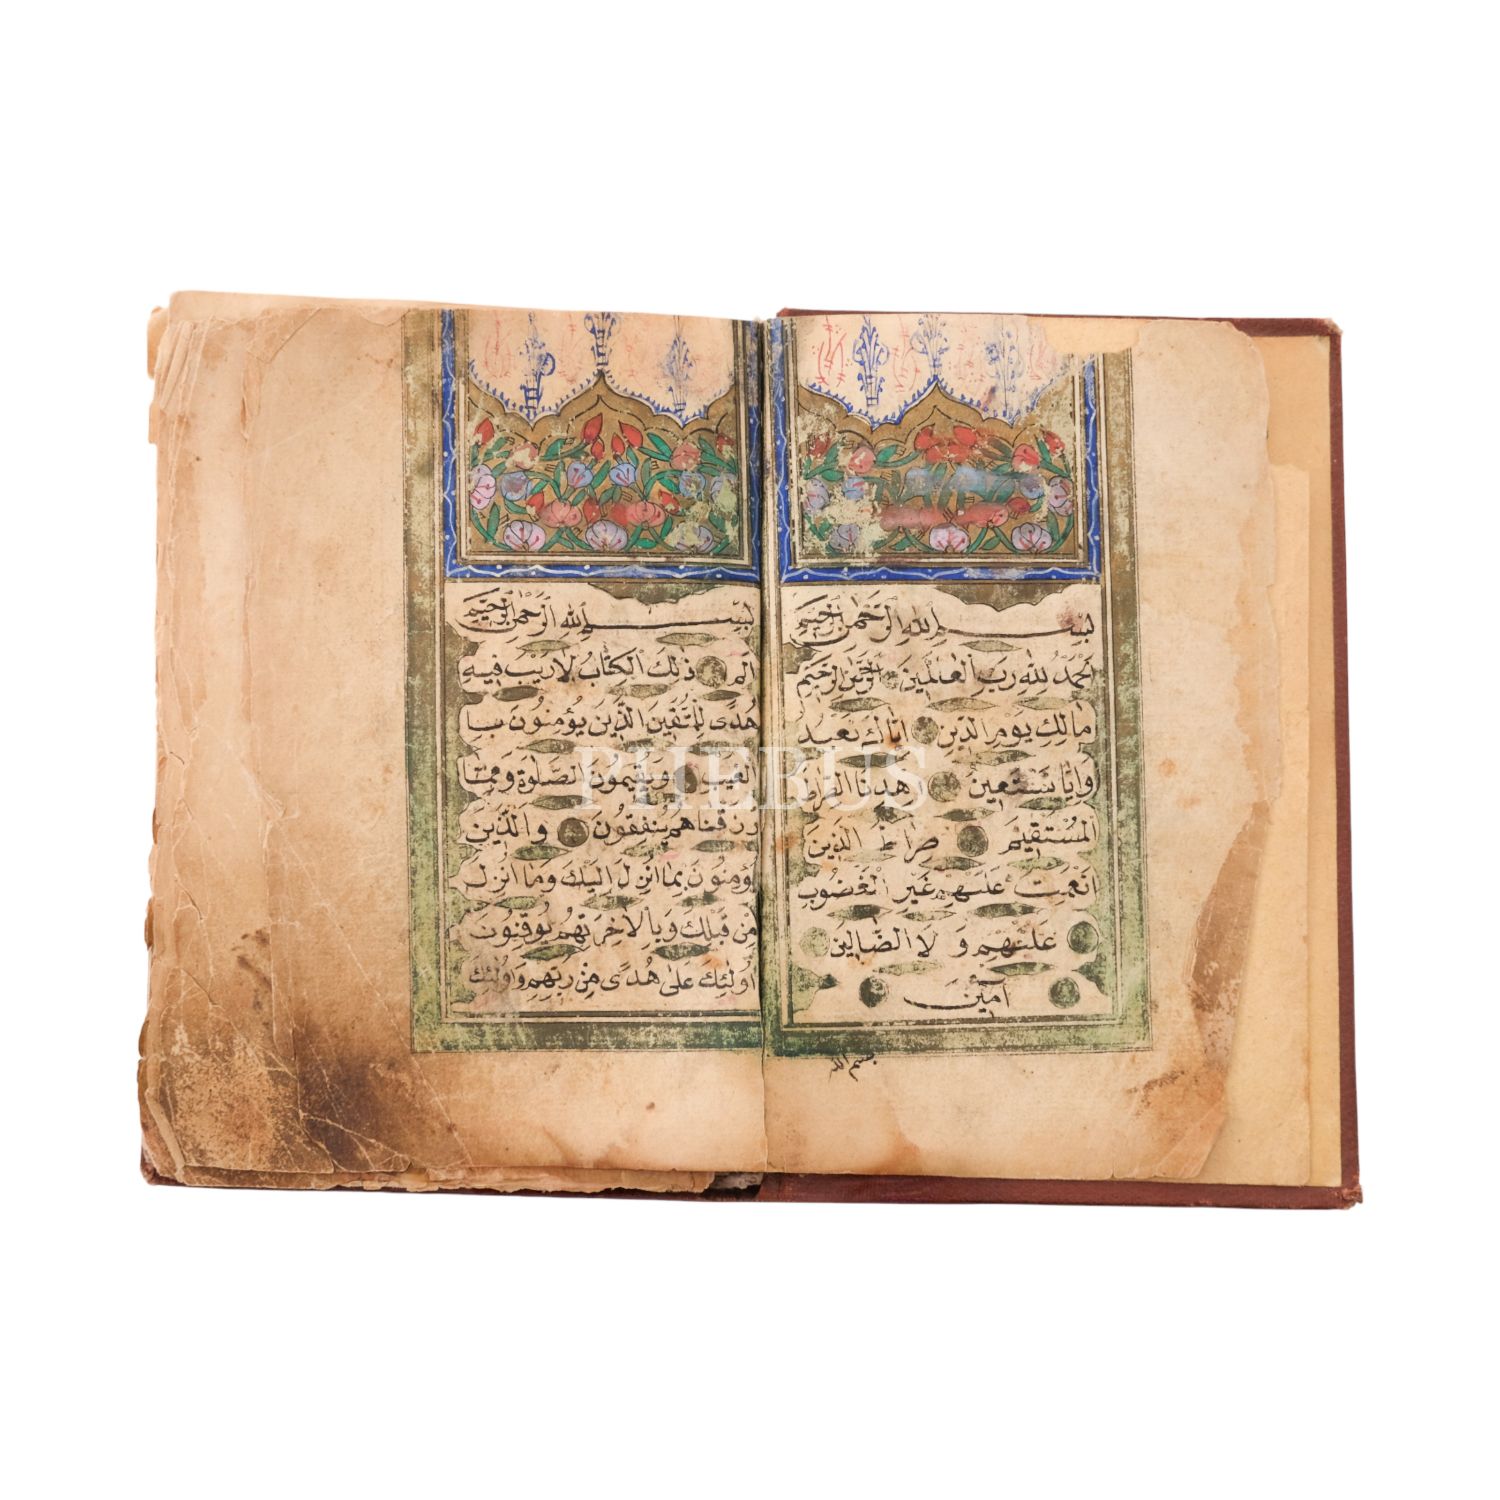 بسم الله الرحمن الرحيم
الحمد لله رب العالمين الرحمن الرحيم
مالك يوم الدين اياك نعبد
واياك نستعين اهدنا الصراط
المستقيم صراط الذين
انعمت عليهم غير المغضوب
عليهم ولا الضالين
آمين
بسم الله
بسم الله الرحمن الرحيم
الم ذلك الكتاب لا ريب فيه
هدى للمتقين الذين يؤمنون با
لغيب ويقيمون الصلوة ومما
رزقناهم ينفقون والذين
يؤمنون بما انزل اليك وما انزل
من قبلك وبالاخرة هم يوقنون
اولئك على هدى من ربهم واولئك
PHEBUS